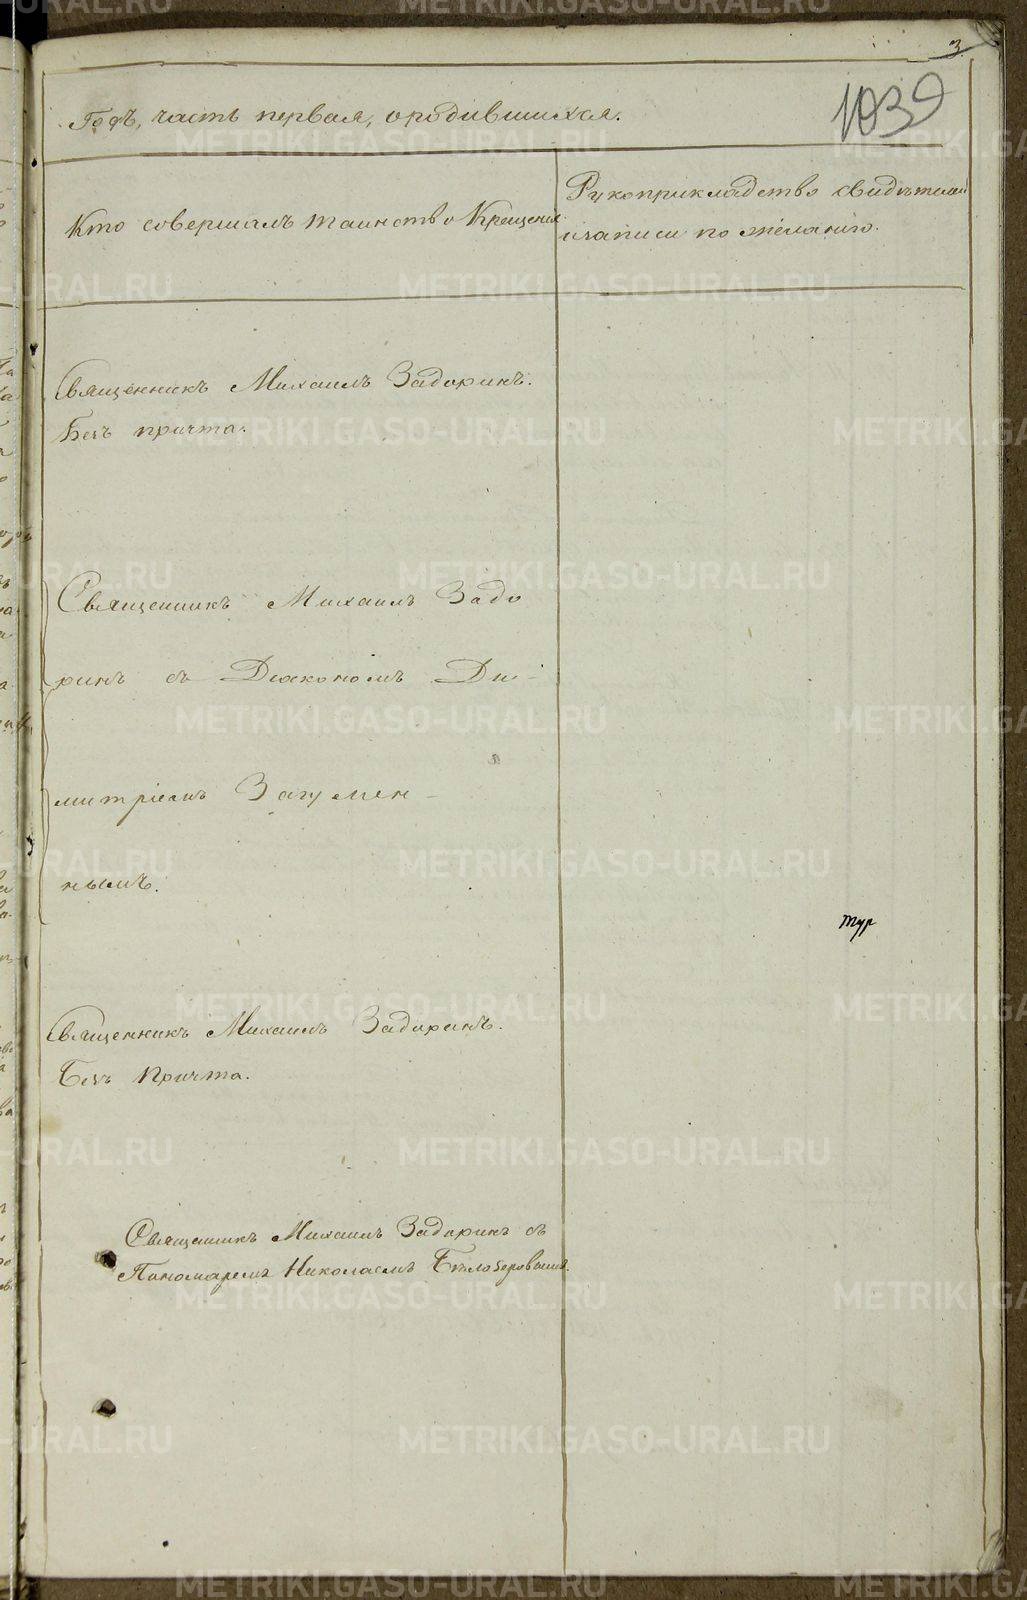 3
1039
Годъ, часть первая, о родившихся.
Кто совершалъ таинство Крещенія
Рукоприкладство свидѣтелей
и записи по желанію.
Священникъ Михаилъ Задоринъ.
Безъ причта.
Священникъ Михаилъ Задо
ринъ съ Діакономъ Ди-
митріемъ Загумен-
нымъ.
тур
Священникъ Михаилъ Задоринъ.
Безъ Причта.
Священникъ Михаилъ Задоринъ съ
Пономаремъ Николаемъ Бѣлозеровымъ.
METRIKI.GASO-URAL.RU